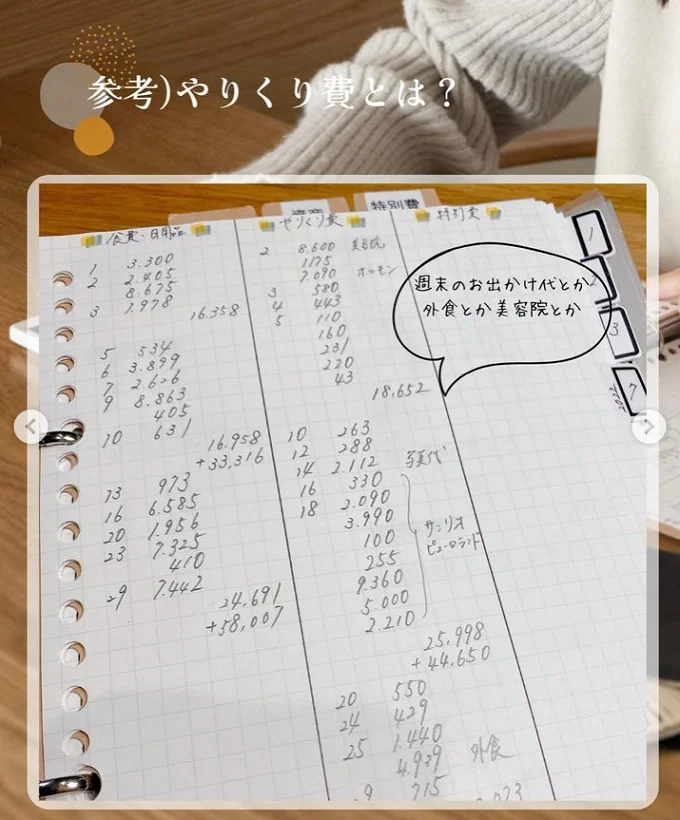 参考)やりくり費とは？
資産
特別費
食費・日用品
1 3.300
2 2.405
8.675
3 1.978
16.358
5 534
6 3.899
7 2.626
9 8.863
405
10 631
16.958
+33,316
13 973
16 6.585
20 1.956
23 7.325
410
29 7.442
24,691
+58,007
やりくり費
2 8.600 美容院
1175
7.090 ホルモン
3 580
4 443
5 110
160
231
220
43
18,652
10 263
12 288
14 2.112 写真代
16 330
18 2.090
3.990
100
255
9.360
5.000
2.210
サンリオ
ピューロランド
25,998
+44,650
20 550
24 429
25 1.440
4.939 外食
715
特別費
週末のお出かけ代とか
外食とか美容院とか
1
2
3
7
2022